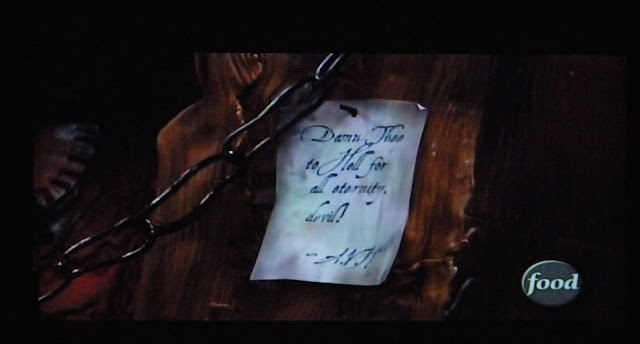 Damn Thee
to Hell for
all eternity,
devil!
food